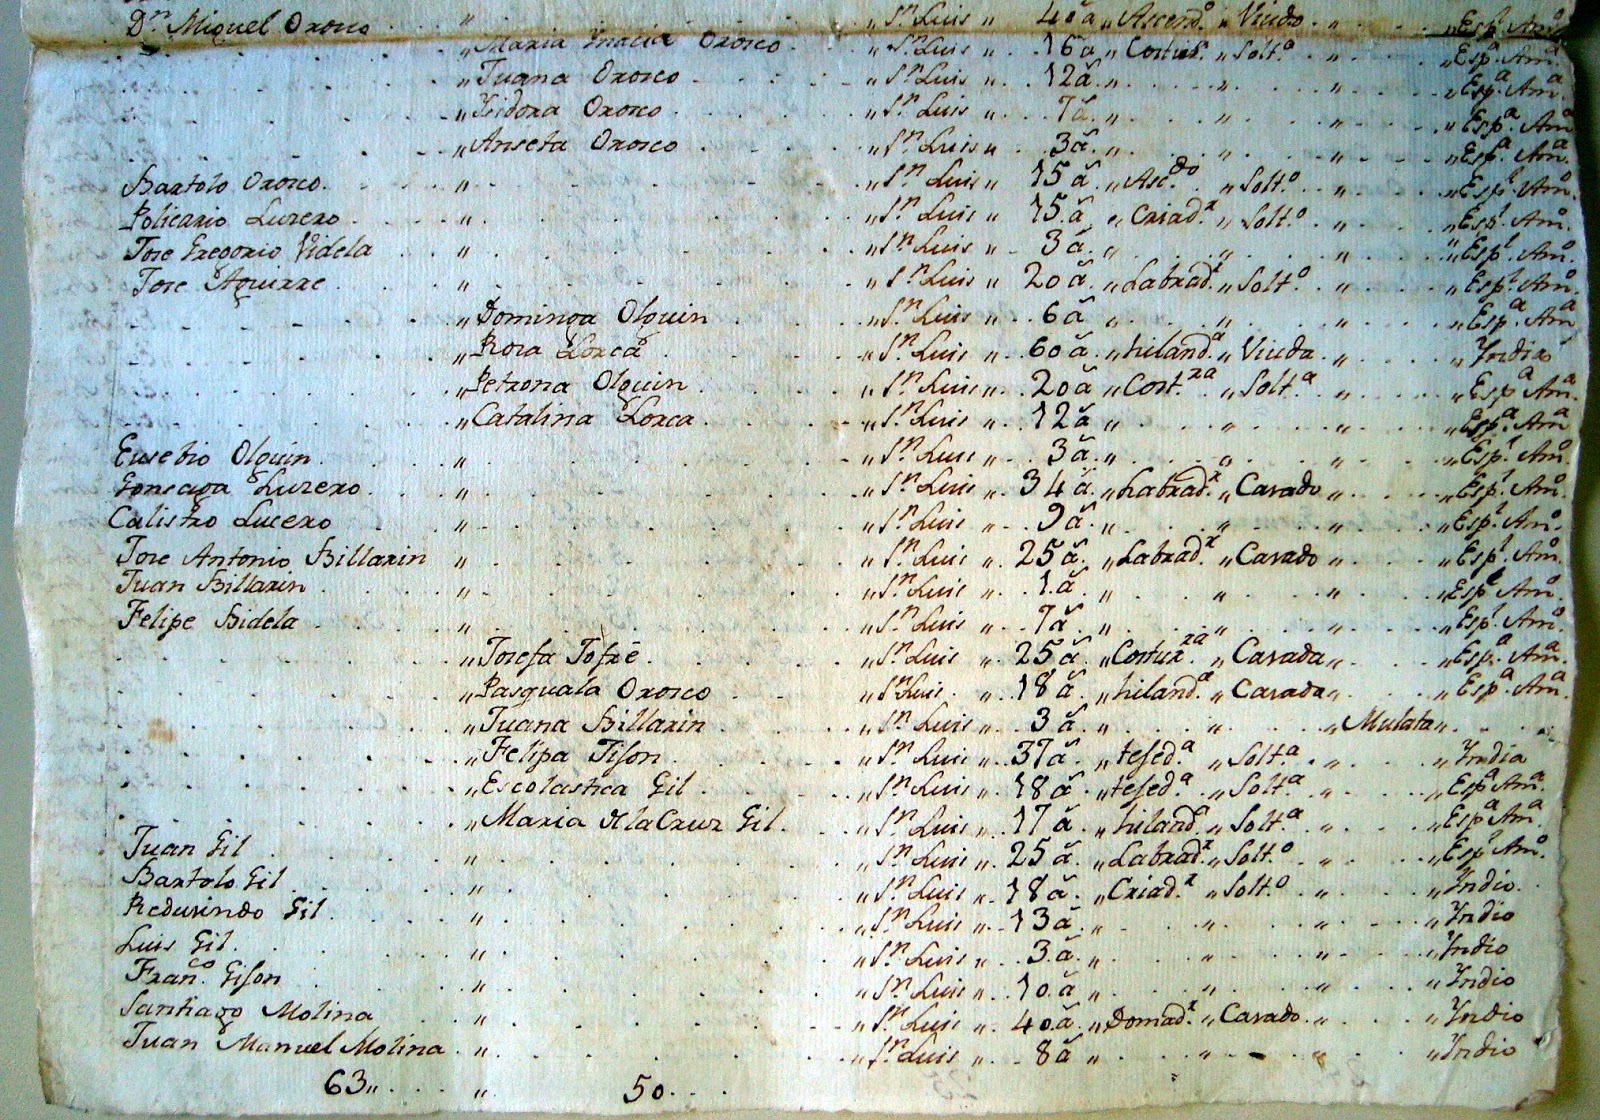 Dn. Miguel Orosco " "Sn. Luis " 40 a "Ascend.o "Viudo " "Espl. Amo.
"Maria Ynacia Orosco "Sn. Luis " 16 a "Costur. "Solt.a "Espa. Ama.
"Juana Orosco "Sn. Luis " 12 a " " " "Espa. Ama.
"Ysidora Orosco "Sn. Luis " 7 a " " " "Espa. Ama.
"Anseta Orosco "Sn. Luis " 3 a " " " "Espa. Ama.
Bartolo Orosco " "Sn. Luis " 15 a "Asc.do "Solt.o " "Espl. Amo.
Policario Luzero " "Sn. Luis " 15 a "Criad.r "Solt.o " "Espl. Amo.
Jose Gregorio Videla " "Sn. Luis " 3 a " " " "Espl. Amo.
Jose Aguirre " "Sn. Luis " 20 a "Labrad.r "Solt.o " "Espl. Amo.
"Dominga Olguin "Sn. Luis " 6 a " " " "Espa. Ama.
"Rosa Lorca "Sn. Luis " 60 a "hiland.a "Viuda " "Yndia
"Petrona Olguin "Sn. Luis " 20 a "Cost.ra "Solt.a " "Espa. Ama.
"Catalina Lorca "Sn. Luis " 12 a " " " "Espa. Ama.
Eusebio Olguin " "Sn. Luis " 3 a " " " "Espl. Amo.
Gonsaga Luzero " "Sn. Luis " 34 a "Labrad.r "Casado " "Espl. Amo.
Calistro Lucero " "Sn. Luis " 9 a " " " "Espl. Amo.
Jose Antonio Billarin " "Sn. Luis " 25 a "Labrad.r "Casado " "Espl. Amo.
Juan Billarin " "Sn. Luis " 1 a " " " "Espl. Amo.
Felipe Bidela " "Sn. Luis " 7 a " " " "Espl. Amo.
"Josefa Jofrè "Sn. Luis " 25 a "Costur.ra "Casada " "Espa. Ama.
"Pasquala Orosco "Sn. Luis " 18 a "hiland.a "Casada " "Espa. Ama.
"Juana Billarin "Sn. Luis " 3 a " " "Mulata "
"Felipa Tison "Sn. Luis " 37 a "tesed.a "Solt.a "Yndia
"Escolastica Gil "Sn. Luis " 18 a "tesed.a "Solt.a " "Espa. Ama.
"Maria dla Cruz Gil "Sn. Luis " 17 a "hiland.a "Solt.a " "Espa. Ama.
Juan Gil " "Sn. Luis " 25 a "Labrad.r "Solt.o " "Espl. Amo.
Bartolo Gil " "Sn. Luis " 18 a "Criad.r "Solt.o " "Yndio
Redusindo Gil " "Sn. Luis " 13 a " " " "Yndio
Luis Gil " "Sn. Luis " 3 a " " " "Yndio
Fran.co Gison " "Sn. Luis " 10 a " " " "Yndio
Santiago Molina " "Sn. Luis " 40 a "Domad.r "Casado " "Yndio
Juan Manuel Molina " "Sn. Luis " 8 a " " " "Yndio
63 " " 50